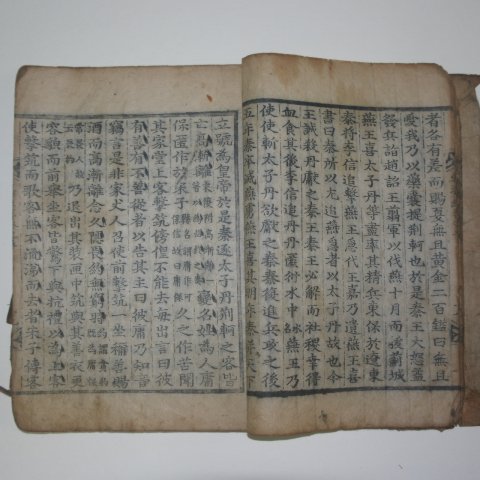 者各有差而賜夏無且黃金二百鎰曰無且
愛我乃以藥囊提荊軻也於是秦王大怒益
發兵詣趙詔王翦軍以伐燕十月而拔薊城
燕王喜太子丹等盡率其精兵東保於遼東
秦將李信追擊燕王急代王嘉乃遺燕王喜
書曰秦所以尤追燕急者以太子丹故也今
王誠殺丹獻之秦王秦王必解而社稷幸得
血食其後李信追丹丹匿衍水中燕王乃
使使斬太子丹欲獻之秦秦復進兵攻之後
五年秦卒滅燕虜燕王喜其明年秦并天下
立號為皇帝於是秦逐太子丹荊軻之客皆
亡高漸離變名姓為人庸
保匿作於宋子久之作苦聞
其家堂上客擊筑傍偟不能去每出言曰彼
有善有不善從者以告其主曰彼庸乃知音
竊言是非家丈人召使前擊筑一坐稱善賜
酒而高漸離念久隱畏約無窮時
乃退出其裝匣中筑與其善衣更
容貌而前舉坐客皆驚下與抗禮以為上客
使擊筑而歌客無不流涕而去者宋子傳客